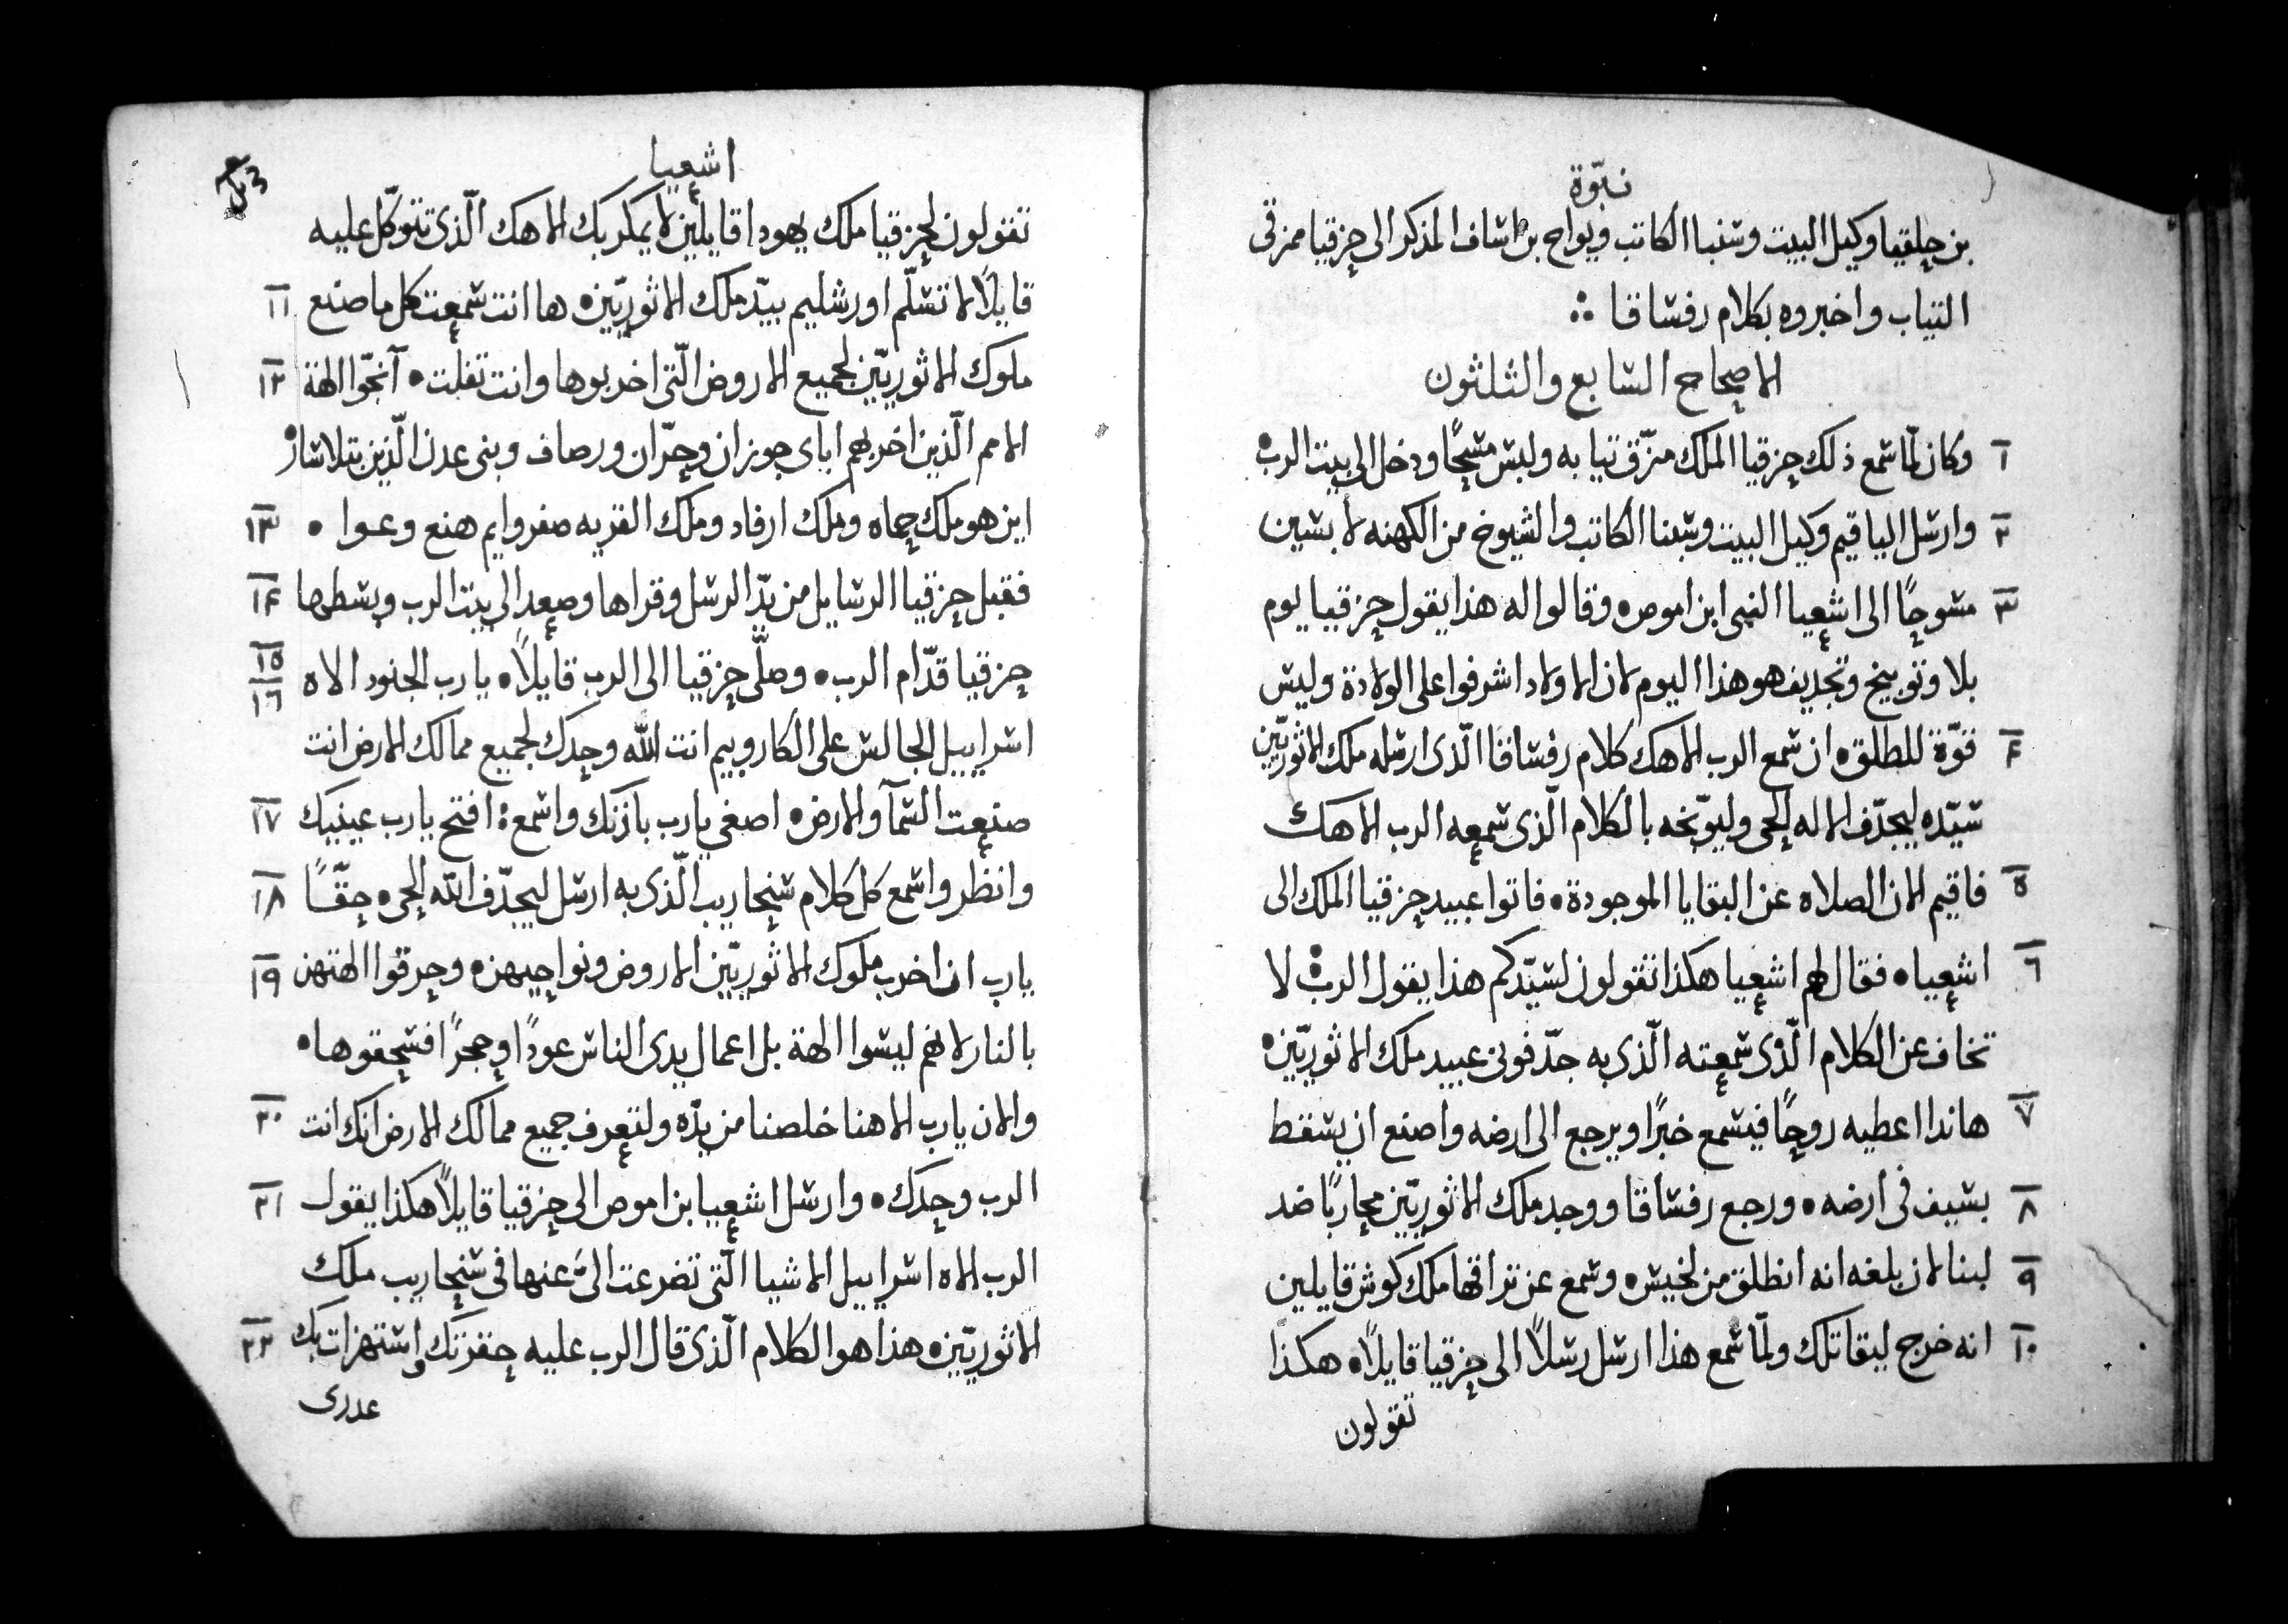 نبوّة
بن حلقيا وكيل البيت وشنبا الكاتب ويواح بن اشاف المذكر الى حزقيا ممزقى
التياب واخبروه بكلام رفشاقا
الاصحاح السابع والثلثون
١ وكان لمّا سمع ذلك حزقيا الملك مزّق تيابه ولبس مسحًا ودخل الى بيت الرب
٢ وارسل الياقيم وكيل البيت وشبنا الكاتب والشيوخ من الكهنه لابسين
٣ مسوحًا الى اشعيا النبى ابن اموص وقالوا له هذا يقول حزقيا يوم
بلا وتوبيخ وتجديف هو هذا اليوم لان الاولاد اشرفوا على الولادة وليس
٤ قوّة للطلق ان سمع الرب الاهك كلام رفشاقا الّذى ارسله ملك الاثوريّين
سيّده ليجدّف الاله الحى وليوبّخه بالكلام الّذى سمعه الرب الاهك
٥ فاقيم الان الصلاه عن البقايا الموجودة فاتوا عبيد حزقيا الملك الى
٦ اشعيا فقال لهم اشعيا هكذا تقولون لسيّدكم هذا يقول الرب لا
تخاف عن الكلام الّذى سمعته الّذى به جدّفونى عبيد ملك الاثوريّين
٧ هاندا اعطيه روحًا فيسمع خبرًا ويرجع الى ارضه واصنع ان يسقط
٨ بسيف فى ارضه ورجع رفشاقا ووجد ملك الاثوريّين محاربًا ضد
٩ لبنا لان بلغه انه انطلق من لخيش وسمع عن تراقها ملك كوش قايلين
١٠ انه خرج ليقاتلك ولمّا سمع هذا ارسل رسلاً الى حزقيا قايلاً هكذا
تقولون
اشعيا
تقولون لحزقيا ملك يهودا قايلين لا يمكر بك الاهك الّذى تتوكّل عليه
١١ قايلاً لا تسلّم اورشليم بيّد ملك الاثوريّين ها انت سمعت كل ما صنع
١٢ ملوك الاثوريّين لجميع الاروض الّتى اخربوها وانت تفلت آنجّوا الهة
الامم الّذين اخربهم اباى جوزان وحرّان ورصاف وبنى عدن الّذين بتلاشار
١٣ اين هو ملك حماه وملك ارفاد وملك القريه صفروايم هنع وعوا
١٤ فقبل حزقيا الرسايل من يدّ الرسل وقراها وصعد الى بيت الرب وبسطها
١٥ ١٦ حزقيا قدّام الرب وصلّى حزقيا الى الرب قايلاً يا رب الجنود الاه
اسراييل الجالس على الكاروبيم انت الله وحدك لجميع ممالك الارض انت
١٧ صنعت السمآ والارض اصغي يا رب باذنك واسمع افتح يا رب عينيك
١٨ وانظر واسمع كل كلام سنحاريب الّذى به ارسل ليجدّف الله الحى حقّاً
١٩ يا رب ان اخرب ملوك الاثوريّين الاروض ونواحيهن وحرقوا الهتهن
بالنار لانهم ليسوا الهة بل اعمال يدى الناس عودًا وحجرًا فسحقوها
٢٠ والان يا رب الاهنا خلصنا من يدّه ولتعرف جميع ممالك الارض انك انت
٢١ الرب وحدك وارسل اشعيا بن اموص الى حزقيا قايلاً هكذا يقول
الرب الاه اسراييل الاشيا الّتى تضرعت الىّ عنها فى سنحاريب ملك
٢٢ الاثوريّين هذا هو الكلام الّذى قال الرب عليه حقرتك واستهزات بك
عدرى